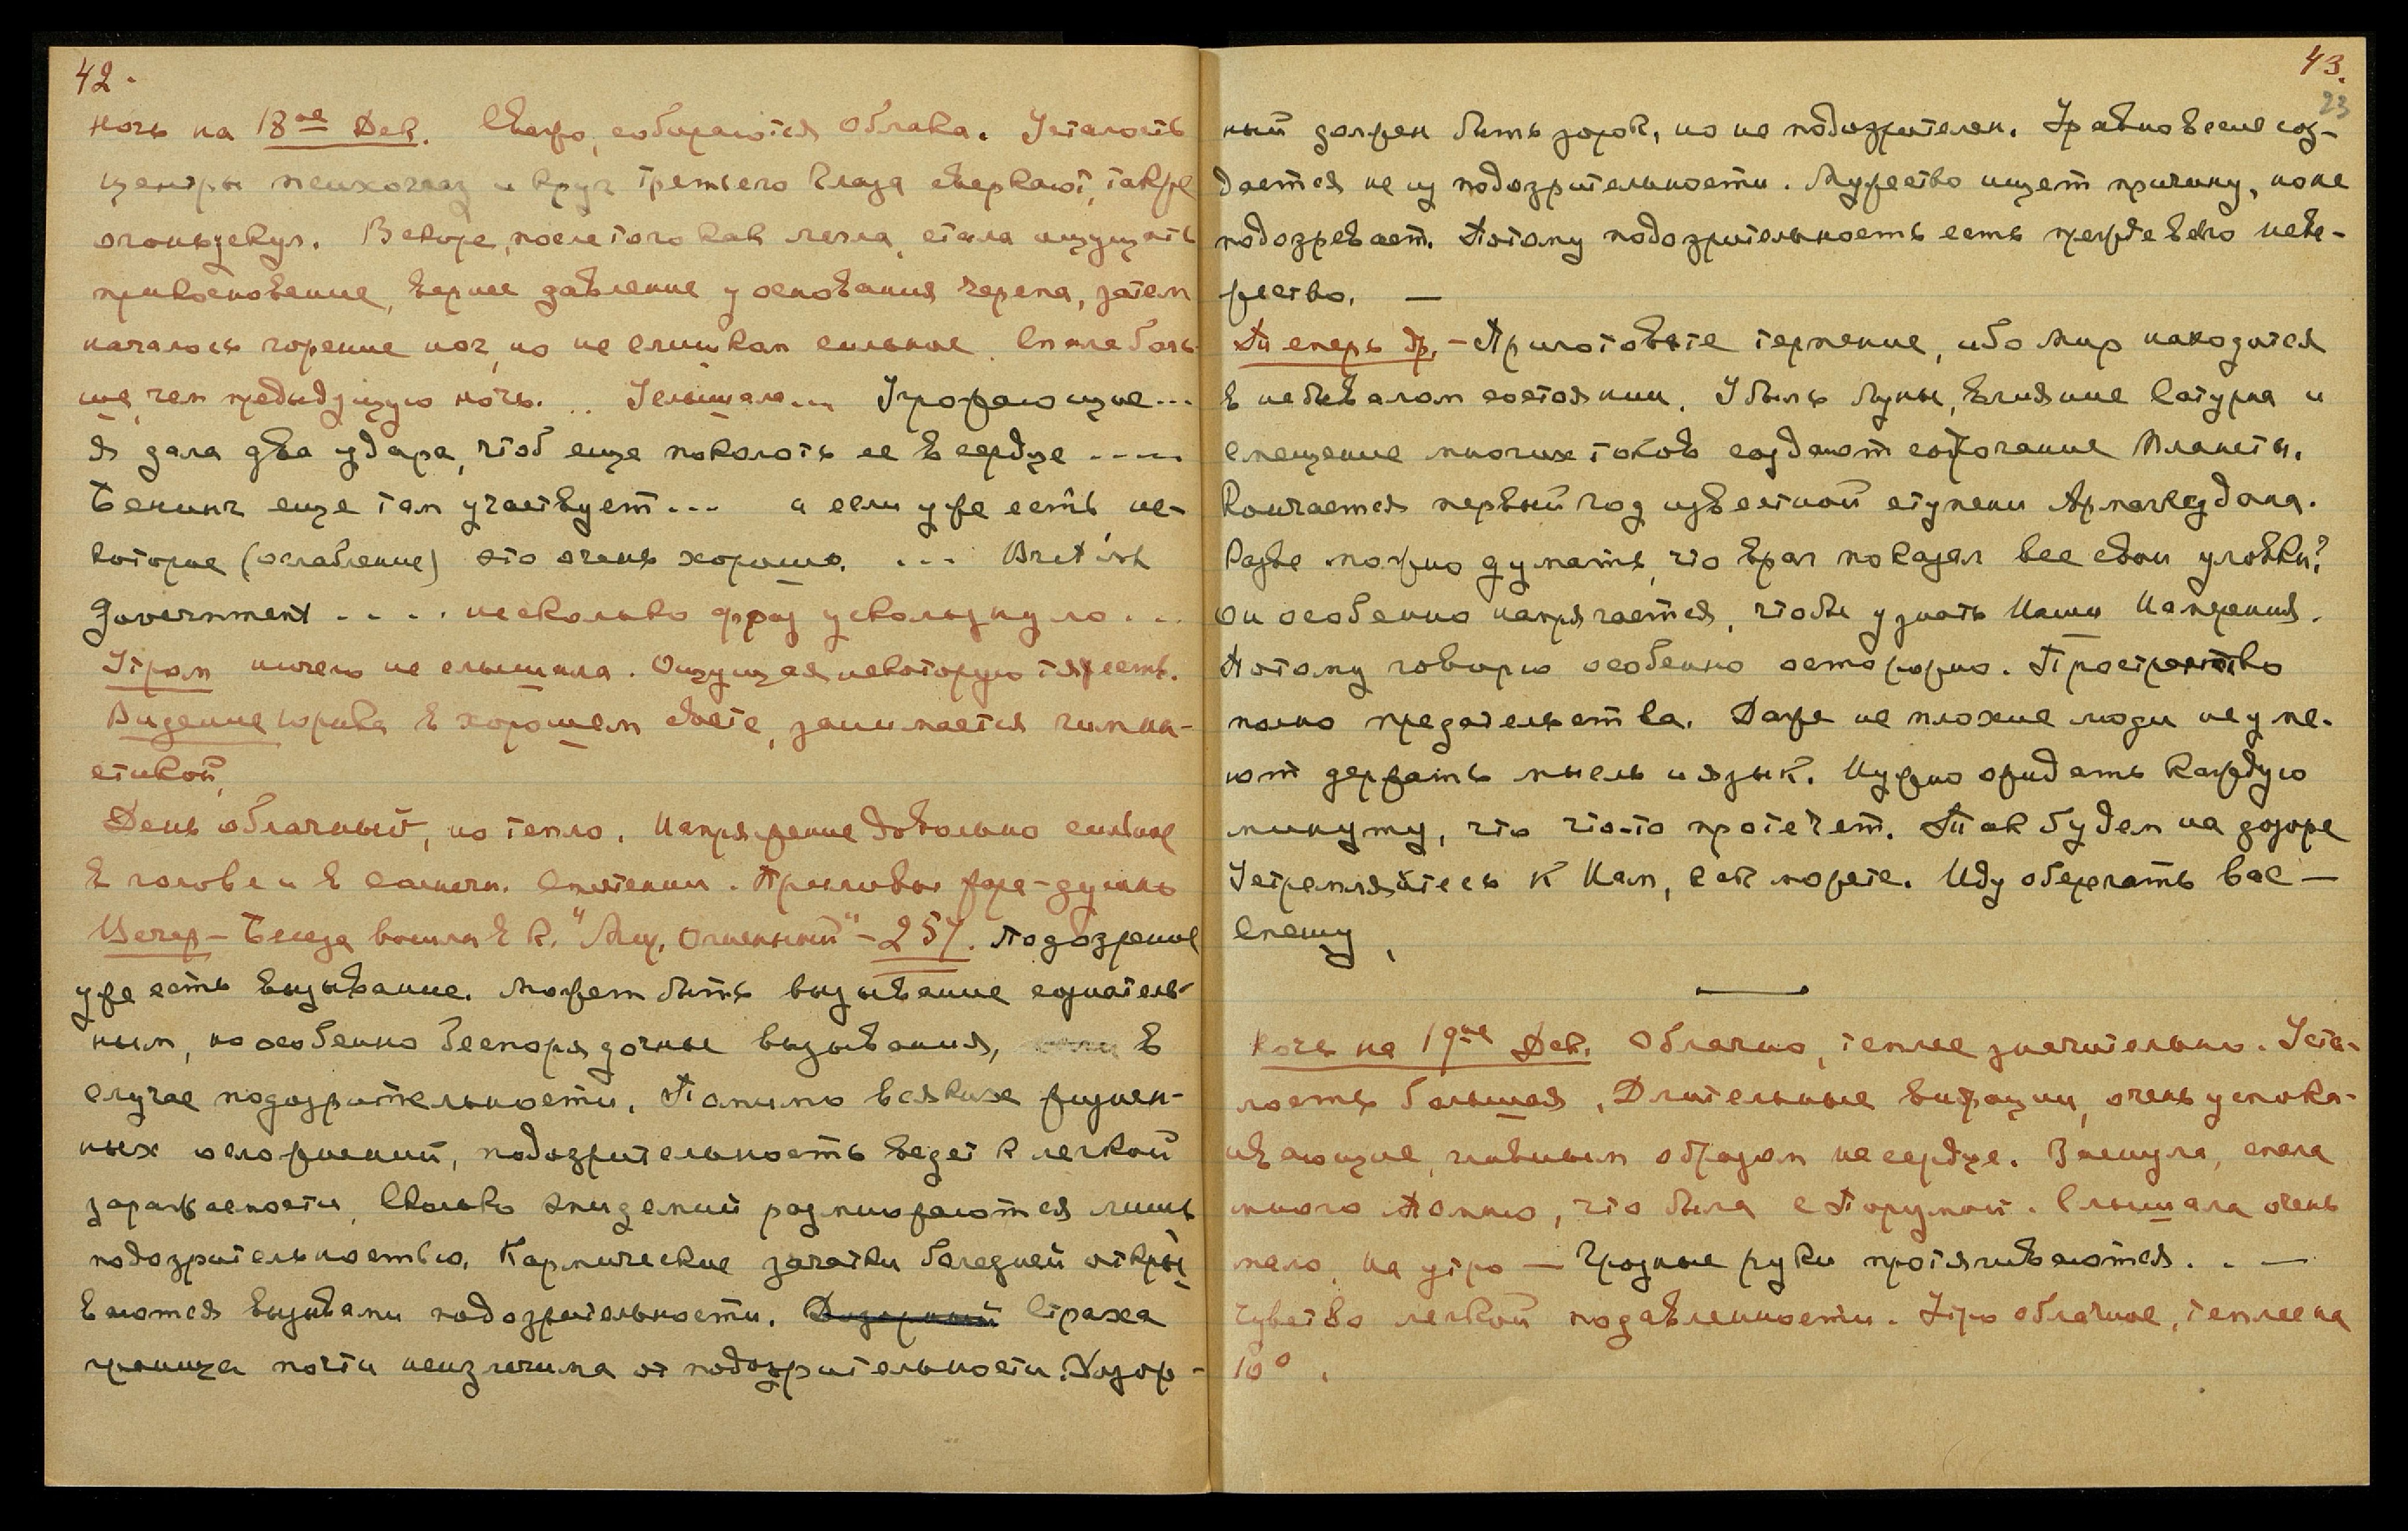 42.
ночь на 18ое Дек. Свежо, собираются облака. Усталость
центры психоглаз и круг третьего глаза сверкают, также
огоньзекул. Вскоре, после того как легла, стала ощущать
прикосновение, вернее давление у основания черепа, затем
началось горение ног, но не слишком сильное. Спала боль-
ше, чем предыдущую ночь... Услышала... Угрожающие...
Я дала два удара, чтоб еще поколоть ее в сердце ----
Бенинг еще там участвует... а если уже есть не-
которые (ослабление) это очень хорошо. ... British
Government .... несколько фраз ускользнуло...
Утром ничего не слышала. Ощущая некоторую тяжесть.
Видение Юрика в хорошем свете, занимается гимна-
стикой,
День облачный, но тепло. Напряжение довольно сильное
в голове и в солнечн. сплетении. Приливы жара - душно
Вечер - Беседа вошла в к. "Мир. Огненный" - 257. Подозрение
уже есть вызывание. Может быть вызывание сознатель-
ным, но особенно беспорядочные вызывания, в
случае подозрительности. Помимо всяких жизнен-
ных осложнений, подозрительность ведет к легкой
заражаемости, сколько эпидемий размножаются лишь
подозрительностью. Кармические зачатки болезней откры-
ваются вызывами подозрительности. Дозорный Страха
граница почти неизлечима от подозрительности. Дозор-
43.
23
ный должен быть зорок, но не подозрителен. Равновесие соз-
дается не из подозрительности. Мужество ищет причину, но не
подозревает. Потому подозрительность есть прежде всего неве-
жество. —
Теперь др. - Приготовьте терпение, ибо мир находится
в небывалом состоянии. Убыль Луны, влияние Сатурна и
смещение многих токов создают содрогание Планеты.
Кончается первый год известной ступени Армагеддона.
Разве можно думать, что враг показал все свои уловки?
Он особенно напрягается, чтобы узнать Наши Намерения.
Потому говорю особенно осторожно. Пространство
полно предательства. Даже не плохие люди не уме-
ют держать мысль и язык. Нужно ожидать каждую
минуту, что что-то протечет. Так будем на дозоре
Устремляйтесь к Нам, как можете. Иду оберегать вас —
Спешу,
Ночь на 19ое Дек. Облачно, теплее значительно. Уста-
лость большая. Длительные вибрации, очень успока-
ивающие, главным образом на сердце. Заснула, спала
много Помню, что была с Порумой. Слышала очень
мало, на утро — Грозные руки протягиваются. . —
Чувство легкой подавленности. Утро облачное, теплее на
10°.